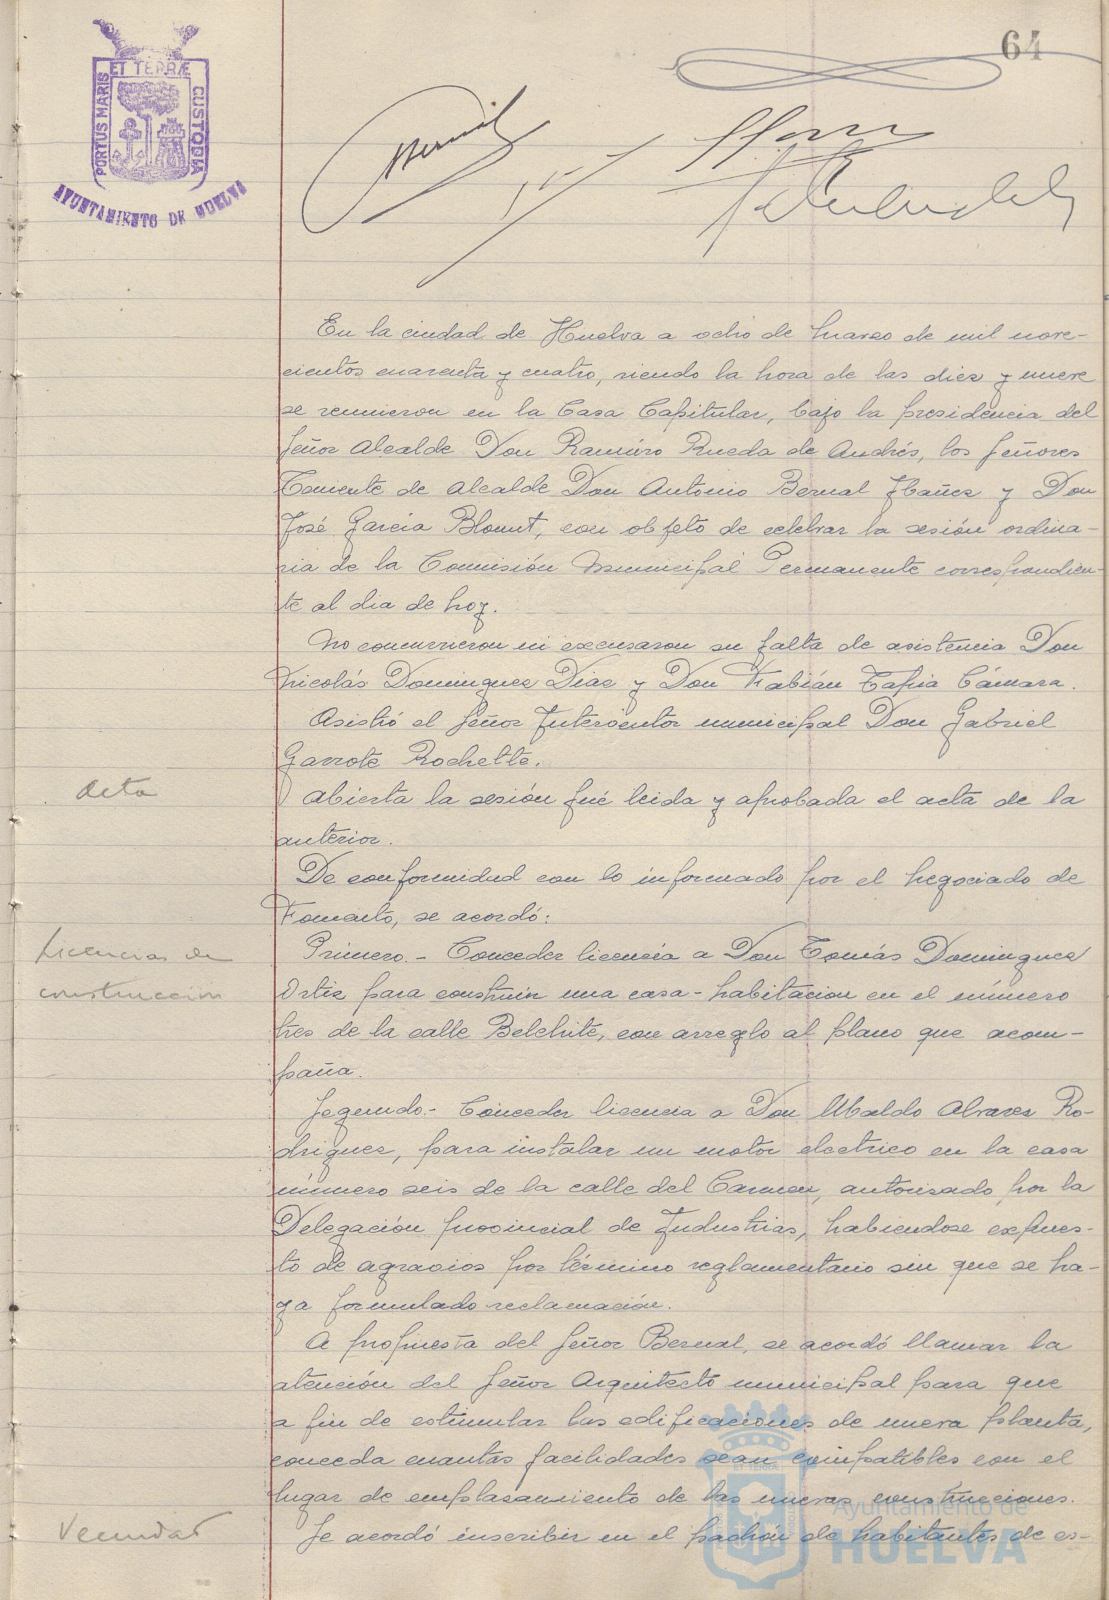 64
PORTUS MARIS ET TERRÆ CUSTODIA
AYUNTAMIENTO DE HUELVA
En la ciudad de Huelva a ocho de Marzo de mil nove-
cientos cuarenta y cuatro, siendo la hora de las diez y nueve
se reunieron en la Casa Capitular, bajo la presidencia del
Señor Alcalde Don Ramiro Rueda de Andrés, los Señores
Teniente de Alcalde Don Antonio Bernal Ibañez y Don
José García Blount, con objeto de celebrar la sesión ordina-
ria de la Comisión Municipal Permanente correspondien-
te al dia de hoy.
No concurrieron ni excusaron su falta de asistencia Don
Nicolás Dominguez Diaz y Don Fabián Tapia Cámara.
Asistió el Señor Interventor municipal Don Gabriel
Garrote Rochette.
Acta
Abierta la sesión fué leida y aprobada el acta de la
anterior.
De conformidad con lo informado por el Negociado de
Fomento, se acordó:
Licencias de
Primero.- Conceder licencia a Don Tomás Dominguez
construccion
Ortiz para construir una casa-habitacion en el número
tres de la calle Belchite, con arreglo al plano que acom-
paña.
Segundo.- Conceder licencia a Don Ubaldo Alvarez Ro-
driguez, para instalar un motor electrico en la casa
número seis de la calle del Carmen, autorizado por la
Delegación provincial de Industrias, habiendose expues-
to de agravios por término reglamentario sin que se ha-
ya formulado reclamación.
A propuesta del Señor Bernal, se acordó llamar la
atención del Señor Arquitecto municipal para que
a fin de estimular las edificaciones de nueva planta,
conceda cuantas facilidades sean compatibles con el
lugar de emplazamiento de las nuevas construcciones.
Vecindad
Se acordó inscribir en el padron de habitantes de es-
Ayuntamiento de
HUELVA